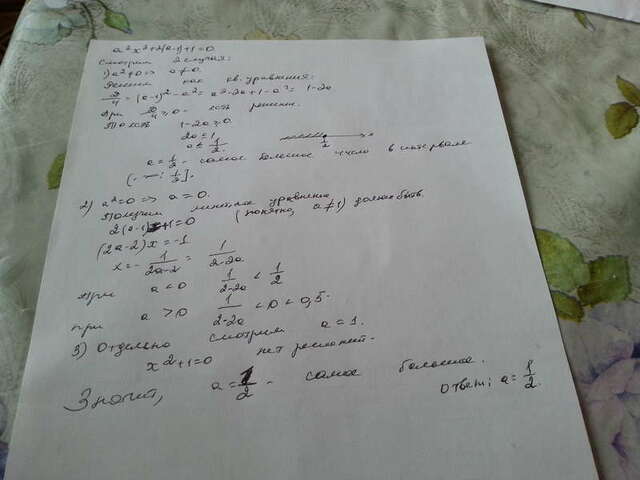 a²x²+2(a-1)+1=0.
Смотрим 2 случая:
1) a²≠0 => a≠0.
Решим как кв. уравнения:
D/4 = (a-1)² - a² = a² - 2a + 1 - a² = 1-2a
При D/4 ≥ 0 - есть решения.
То есть 1-2a ≥ 0.
2a ≤ 1
a ≤ 1/2. 1/2
a = 1/2 - самое большое число в интервале
(-∞; 1/2].
2) a²=0 => a=0.
Получим линейное уравнение
2(a-1)x+1=0 (понятно, a≠1) должно быть.
(2a-2)x = -1
x = - 1/(2a-2) = 1/(2-2a)
при a<0 1/(2-2a) < 1/2
при a>0 1/(2-2a) < 0 < 0,5.
3) Отдельно смотрим a=1.
x²+1=0 нет решений.
Значит, a = 1/2 - самое большое.
Ответ: a = 1/2.